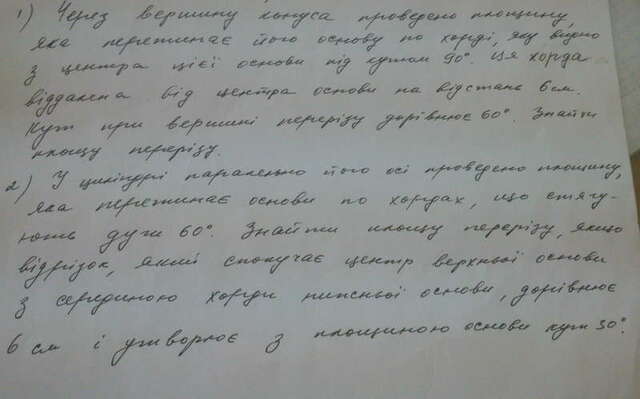 1) Через вершину конуса проведено площину,
яка перетинає його основу по хорді, яку видно
з центра цієї основи під кутом 90°. Ця хорда
віддалена від центра основи на відстань 6 см.
Кут при вершині перерізу дорівнює 60°. Знайти
площу перерізу.
2) У циліндрі паралельно його осі проведено площину,
яка перетинає основи по хордах, що стягу-
ють дуги 60°. Знайти площу перерізу, якщо
відрізок, який сполучає центр верхньої основи
з серединою хорди нижньої основи, дорівнює
6 см і утворює з площиною основи кут 30°.